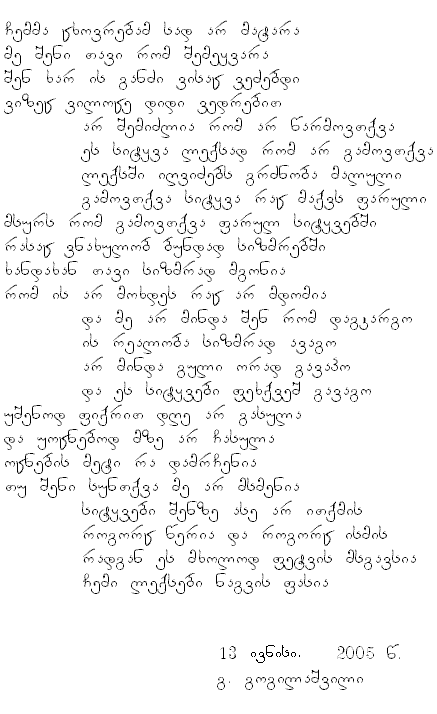 ჩემმა ცხოვრებამ სად არ მატარა
მე შენი თავი რომ შემეყვარა
შენ ხარ ის განძი ვისაც ვეძებდი
ვიზეც ვილოცე დიდი ვედრებით
არ შემიძლია რომ არ წარმოვთქვა
ეს სიტყვა ლექსად რომ არ გამოვთქვა
ლექსში იღვიძებს გრძნობა მალული
გამოვთქვა სიტყვა რაც მაქვს ფარული
მსურს რომ გამოვთქვა ფარულ სიტყვებში
რასაც ვნახულობ ბუნდად სიზმრებში
ხანდახან თავი სიზმრად მგონია
რომ ის არ მოხდეს რაც არ მდომია
და მე არ მინდა შენ რომ დაგკარგო
ის რეალობა სიზმრად ავაგო
არ მინდა გული ორად გავაპო
და ეს სიტყვები ფეხქვეშ გავაგო
უშენოდ ფიქრით დღე არ გასულა
და უოცნებოდ მზე არ ჩასულა
ოცნების მეტი რა დამრჩენია
თუ შენი სუნთქვა მე არ მსმენია
სიტყვები შენზე ასე არ ითქმის
როგორც წერია და როგორც ისმის
რადგან ეს მხოლოდ ფეტვის მსგავსია
ჩემი ლექსები ნაგვის ფასია
13 ივნისი. 2005 წ.
გ. გოგილაშვილი